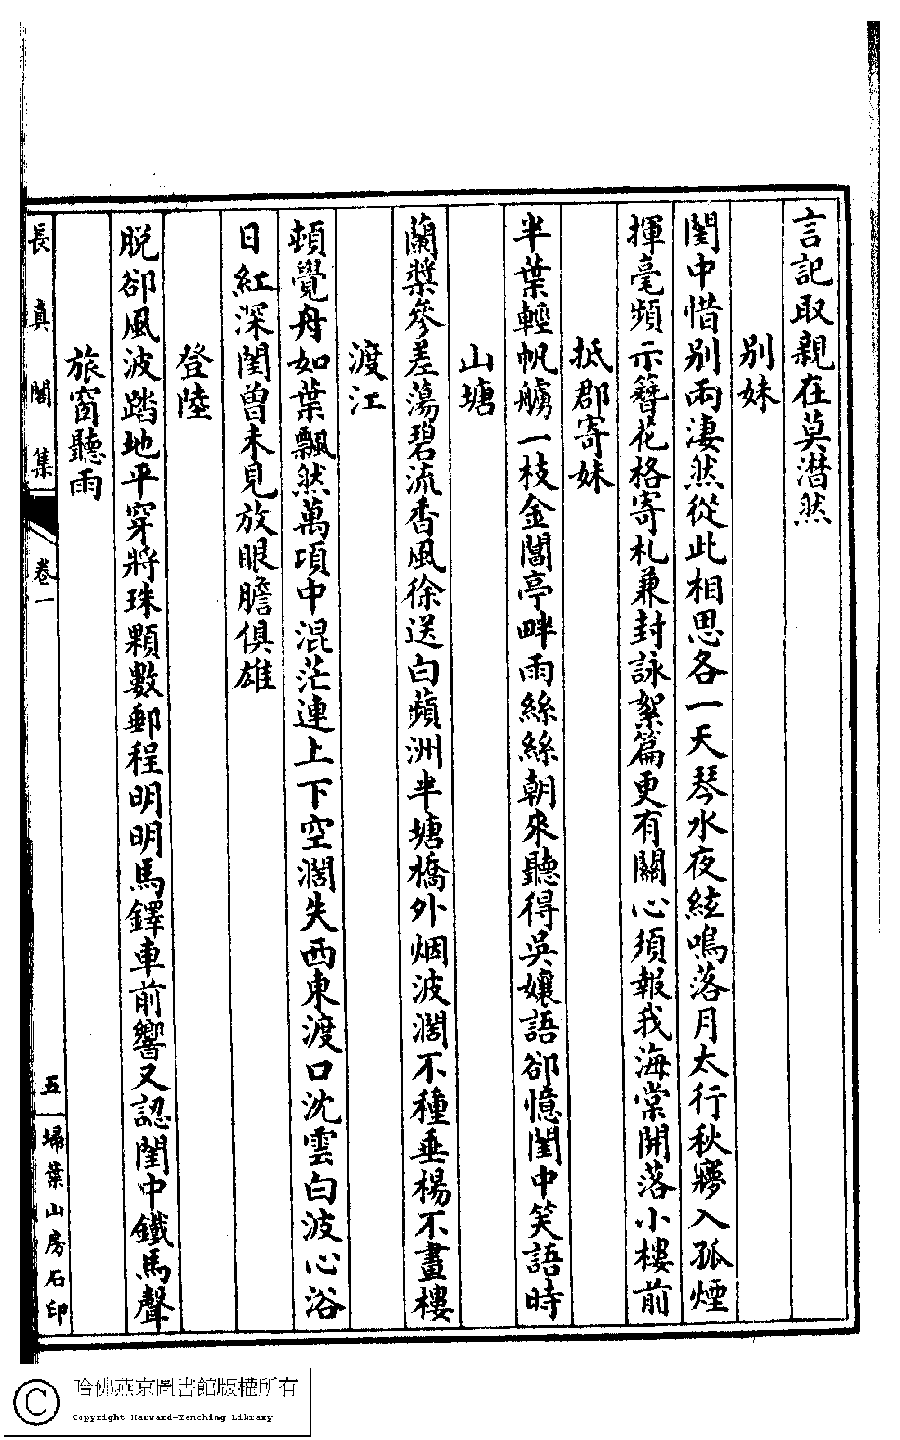 言記取親在莫潸然
別妹
閨中惜別兩淒然從此相思各一天琴水夜絃鳴落月太行秋寢入孤煙
揮毫頻示簪花格寄札兼封詠絮篇更有關心須報我海棠開落小樓前
抵郡寄妹
半葉輕帆艣一枝金閶亭畔雨絲絲朝來聽得吳孃語卻憶閨中笑語時
山塘
蘭槳參差蕩碧流香風徐送白蘋洲半塘橋外烟波濶不種垂楊不畫樓
渡江
頓覺舟如葉飄然萬項中混茫連上下空濶失西東渡口沈雲白波心浴
日紅深閨曾未見放眼膽俱雄
登陸
脫卻風波踏地平穿將珠顆數郵程明明馬鐸車前響又認閨中鐵馬聲
旅窗聽雨
長真閣集
卷一
五
埽葉山房石印
哈佛燕京圖書館版權所有
Copyright Harvard-Yenching Library